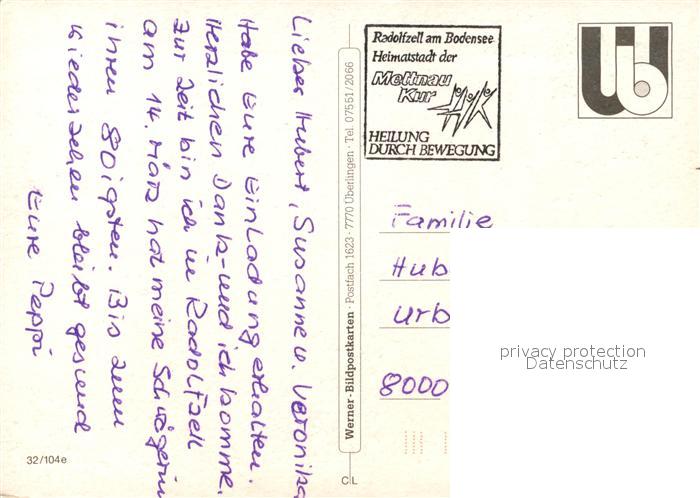 Lieber Hubert, Susanne u. Veronika
Habe Eure Einladung erhalten.
Herzlichen Dank-und ich komme.
Zur Zeit bin ich in Radolfzell
am 14. März hat meine Schwägerin
ihren 80igsten. Bis zum
wiedersehen bleibt gesund
Eure Peppi
32/104e
Werner-Bildpostkarten · Postfach 1623 · 7770 Überlingen · Tel. 07551/2066
CL
Radolfzell am Bodensee
Heimatstadt der
Mettnau
Kur
HEILUNG
DURCH BEWEGUNG
Familie
Hub
Urb
8000
privacy protection
Datenschutz